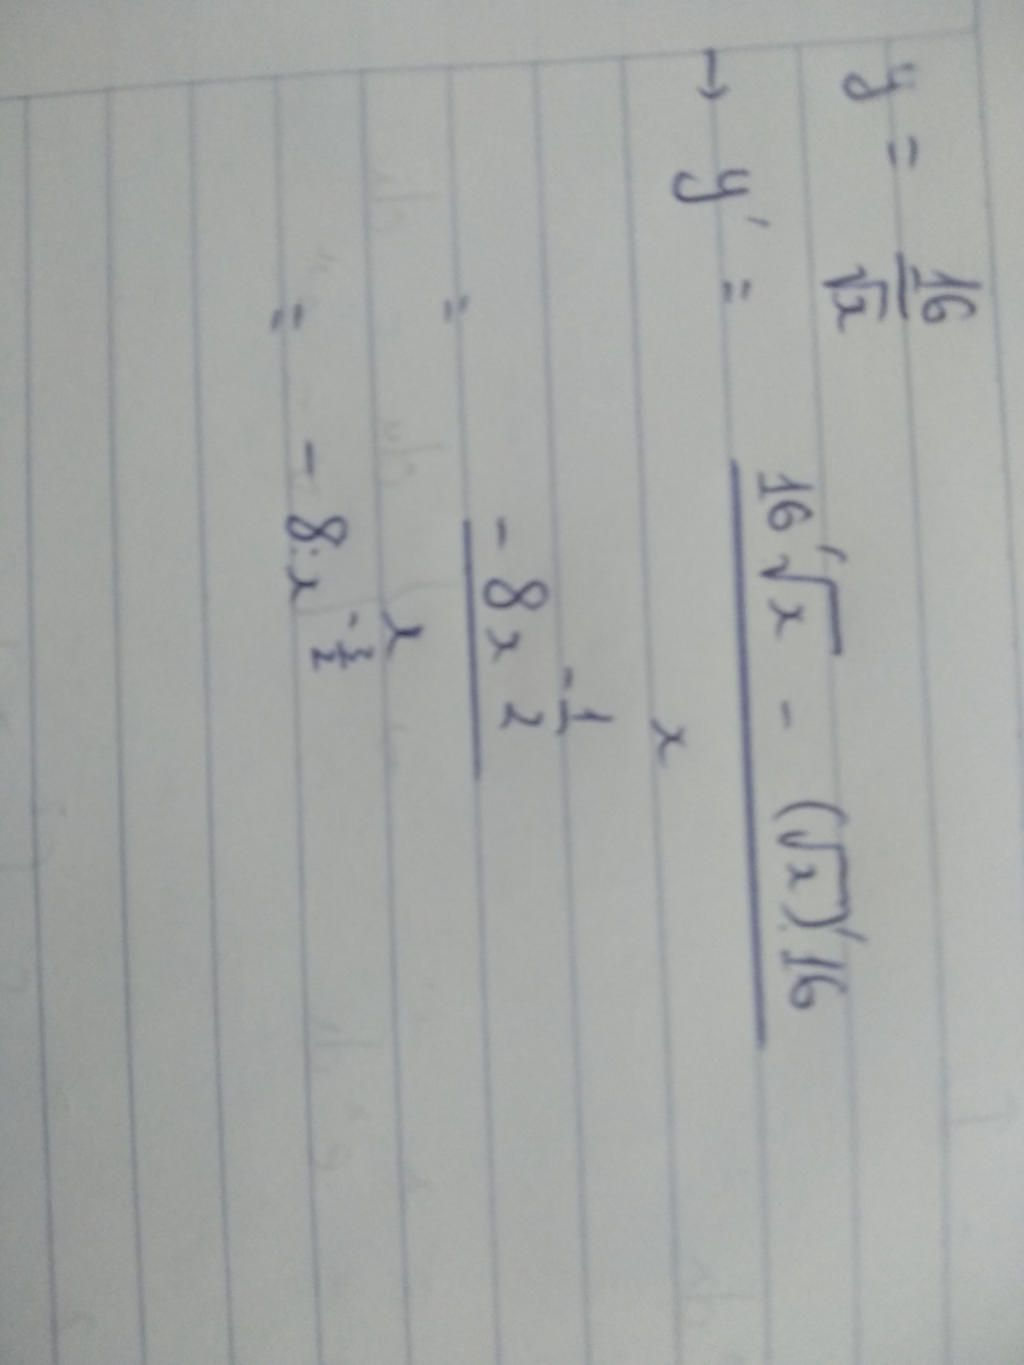 y = 16/√x
→ y' = (16'√x - (√x)'16)/x
= (-8x^(-1/2))/x
= -8.x^(-3/2)